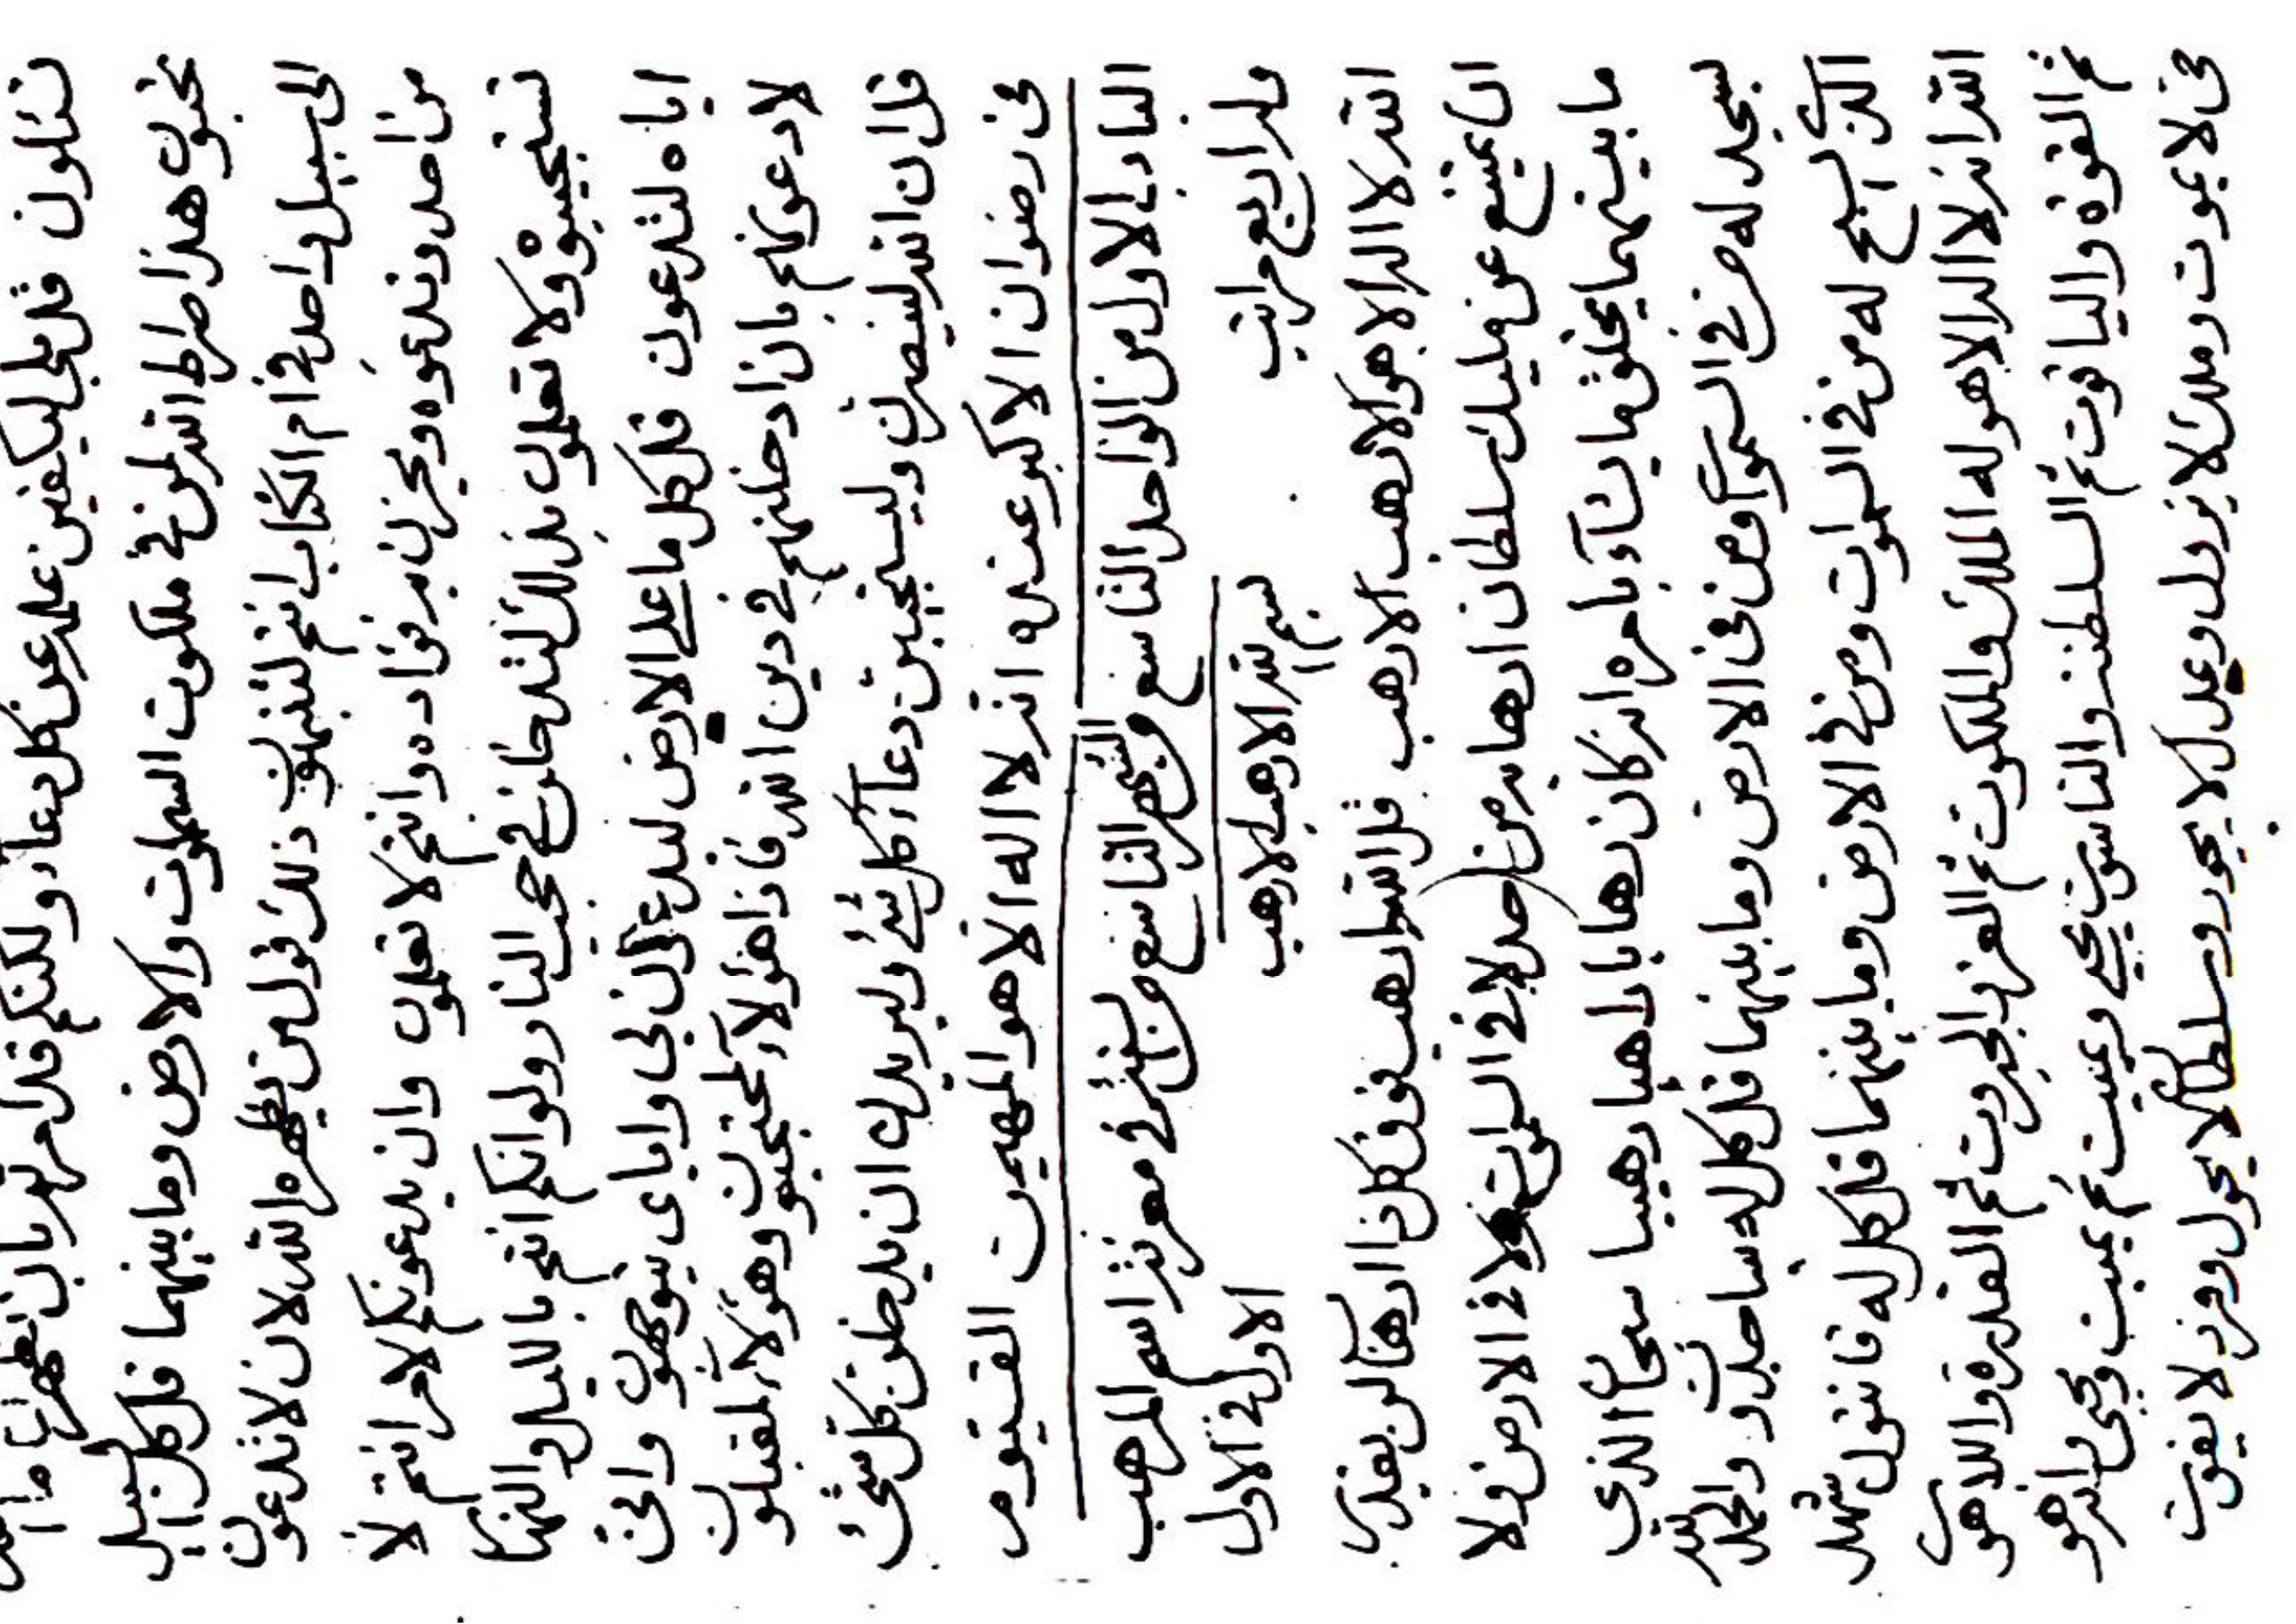 تسئلون قل بلی ليكفين علمه عن كل دعاء ولكنكم قد امرتم بان تظهرن ما
تحبون هذا صراط الله لمن في ملكوت السموات والارض وما بينهما قل كل السبل
الى سبيل واحد في ام الكتاب انتم لتنتهون ذلك قول من يظهره الله لان لا تدعون
من احد وتدعوه ويحزن به فؤاده وانتم لا تعلمون وان يدعونكم لامر انتم لا
تستجيبوه ولا تعلمون بذلك لتدخلن في حجب النار ولو انكم انتم بالليل والنهار
اياه لتدعون قل كل ما على الارض ليدعون لي واياى يتوجهون وانى
لادعونكم بان ادخلنهم في دين الله فاذا هؤلاء لمحتجبون وهؤلاء لمقبلون
قل ان الله لينصرن وليستجيبن دعاء كل شئ وليريدن ان يدخلن كل شئ
فى رضوان الاكبر عنده انه لا اله الا هو المهيمن القيوم
الباب الاول من الواحد التاسع من الشهر التاسع من السنة في معرفة اسم المرهب
وله اربع مراتب الاول في الاول
بسم الله الارهب الارهب
الله لا اله الا هو الارهب الارهب قل الله ارهب فوق كل ذا ارهاب لن يقدر
ان يمتنع عن مليك سلطان ارهابه من احد لا في السموات ولا في الارض ولا
ما بينهما يخلق ما يشاء بامره انه كان رهابا راهبا رهيبا سبحان الذي
يسجد له من في السموات ومن فى الارض وما بينهما قل كل له ساجدون والحمد لله
الذي يسبح له من في السموات ومن في الارض وما بينهما قل كل له قانتون شهد
الله انه لا اله الا هو له الملك والملكوت ثم العز والجبروت ثم القدرة واللاهوت
ثم القوة والياقوت ثم السلطنة والناسوت يحيى ويميت ثم يميت ويحيى وانه هو
حى لا يموت وملك لا يزول وعدل لا يجور وسلطان لا يحول وفرد لا يفوت